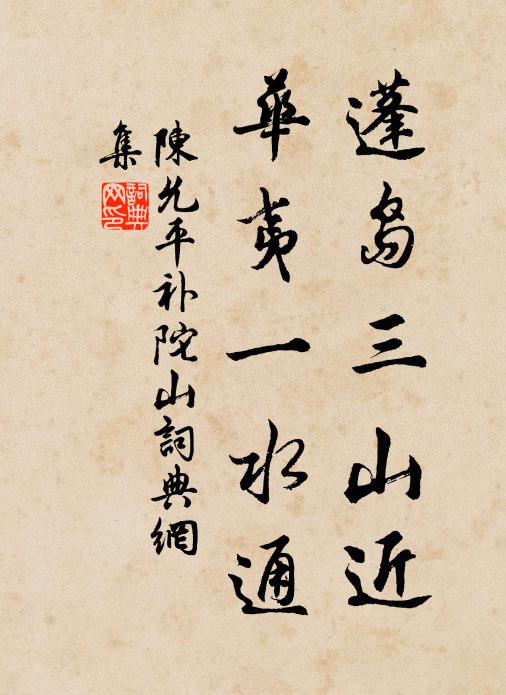 蓬島三山近
華夷一水通
陳允平补陀山詞典網
集
詞典网印